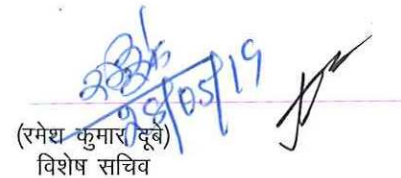 28/05/19
(रमेश कुमार दूबे)
विशेष सचिव